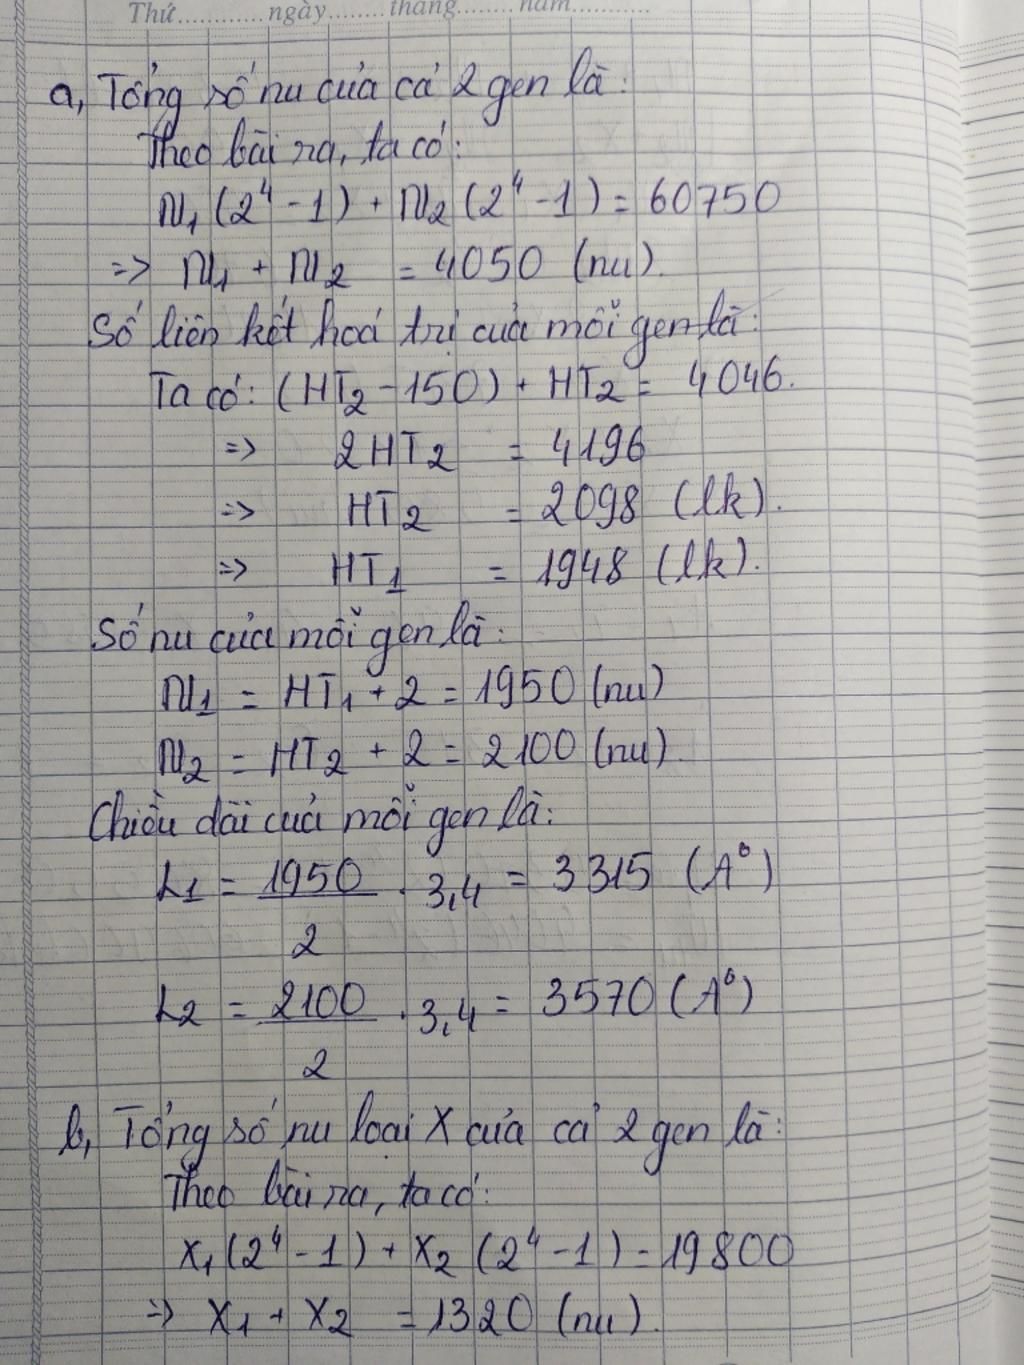 Thứ.......... ngày........ tháng......... năm............
a, Tổng số nu của cả 2 gen là:
Theo bài ra, ta có:
N₁ (2⁴ - 1) + N₂ (2⁴ - 1) = 60750
=> N₁ + N₂ = 4050 (nu).
Số liên kết hoá trị của mỗi gen là:
Ta có: (HT₂ - 150) + HT₂ = 4046.
=> 2HT₂ = 4196
=> HT₂ = 2098 (lk).
=> HT₁ = 1948 (lk).
Số nu của mỗi gen là:
N₁ = HT₁ + 2 = 1950 (nu)
N₂ = HT₂ + 2 = 2100 (nu).
Chiều dài của mỗi gen là:
L₁ = 1950/2 . 3,4 = 3315 (A⁰)
L₂ = 2100/2 . 3,4 = 3570 (A⁰)
b, Tổng số nu loại X của cả 2 gen là:
Theo bài ra, ta có:
X₁ (2⁴ - 1) + X₂ (2⁴ - 1) = 19800
=> X₁ + X₂ = 1320 (nu).